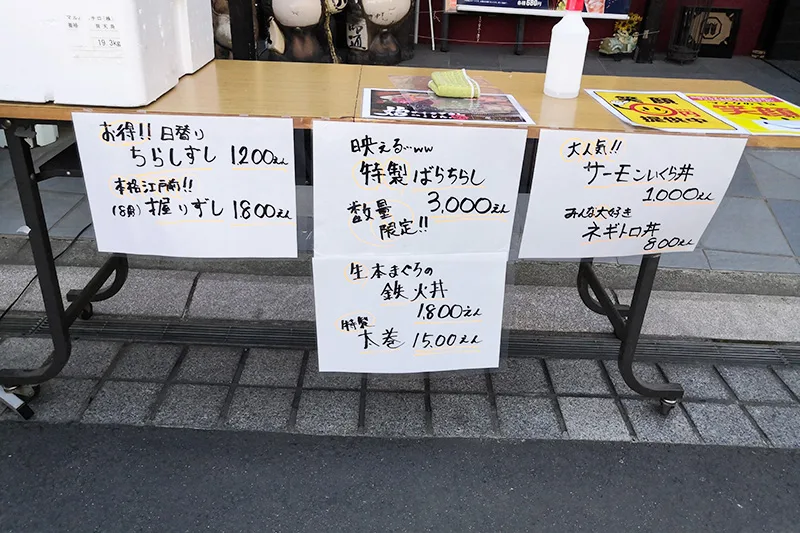 19.3kg
お得!! 日替り
ちらしすし 1200えん
本格江戸前!!
(8貫) 握りずし 1.800えん
映える…ww
特製 ばらちらし
数量
限定!! 3,000えん
生本まぐろの
鉄火丼
1,800えん
特製
太巻 15.00えん
大人気!!
サーモンいくら丼
1,000えん
みんな大好き
ネギトロ丼
800えん